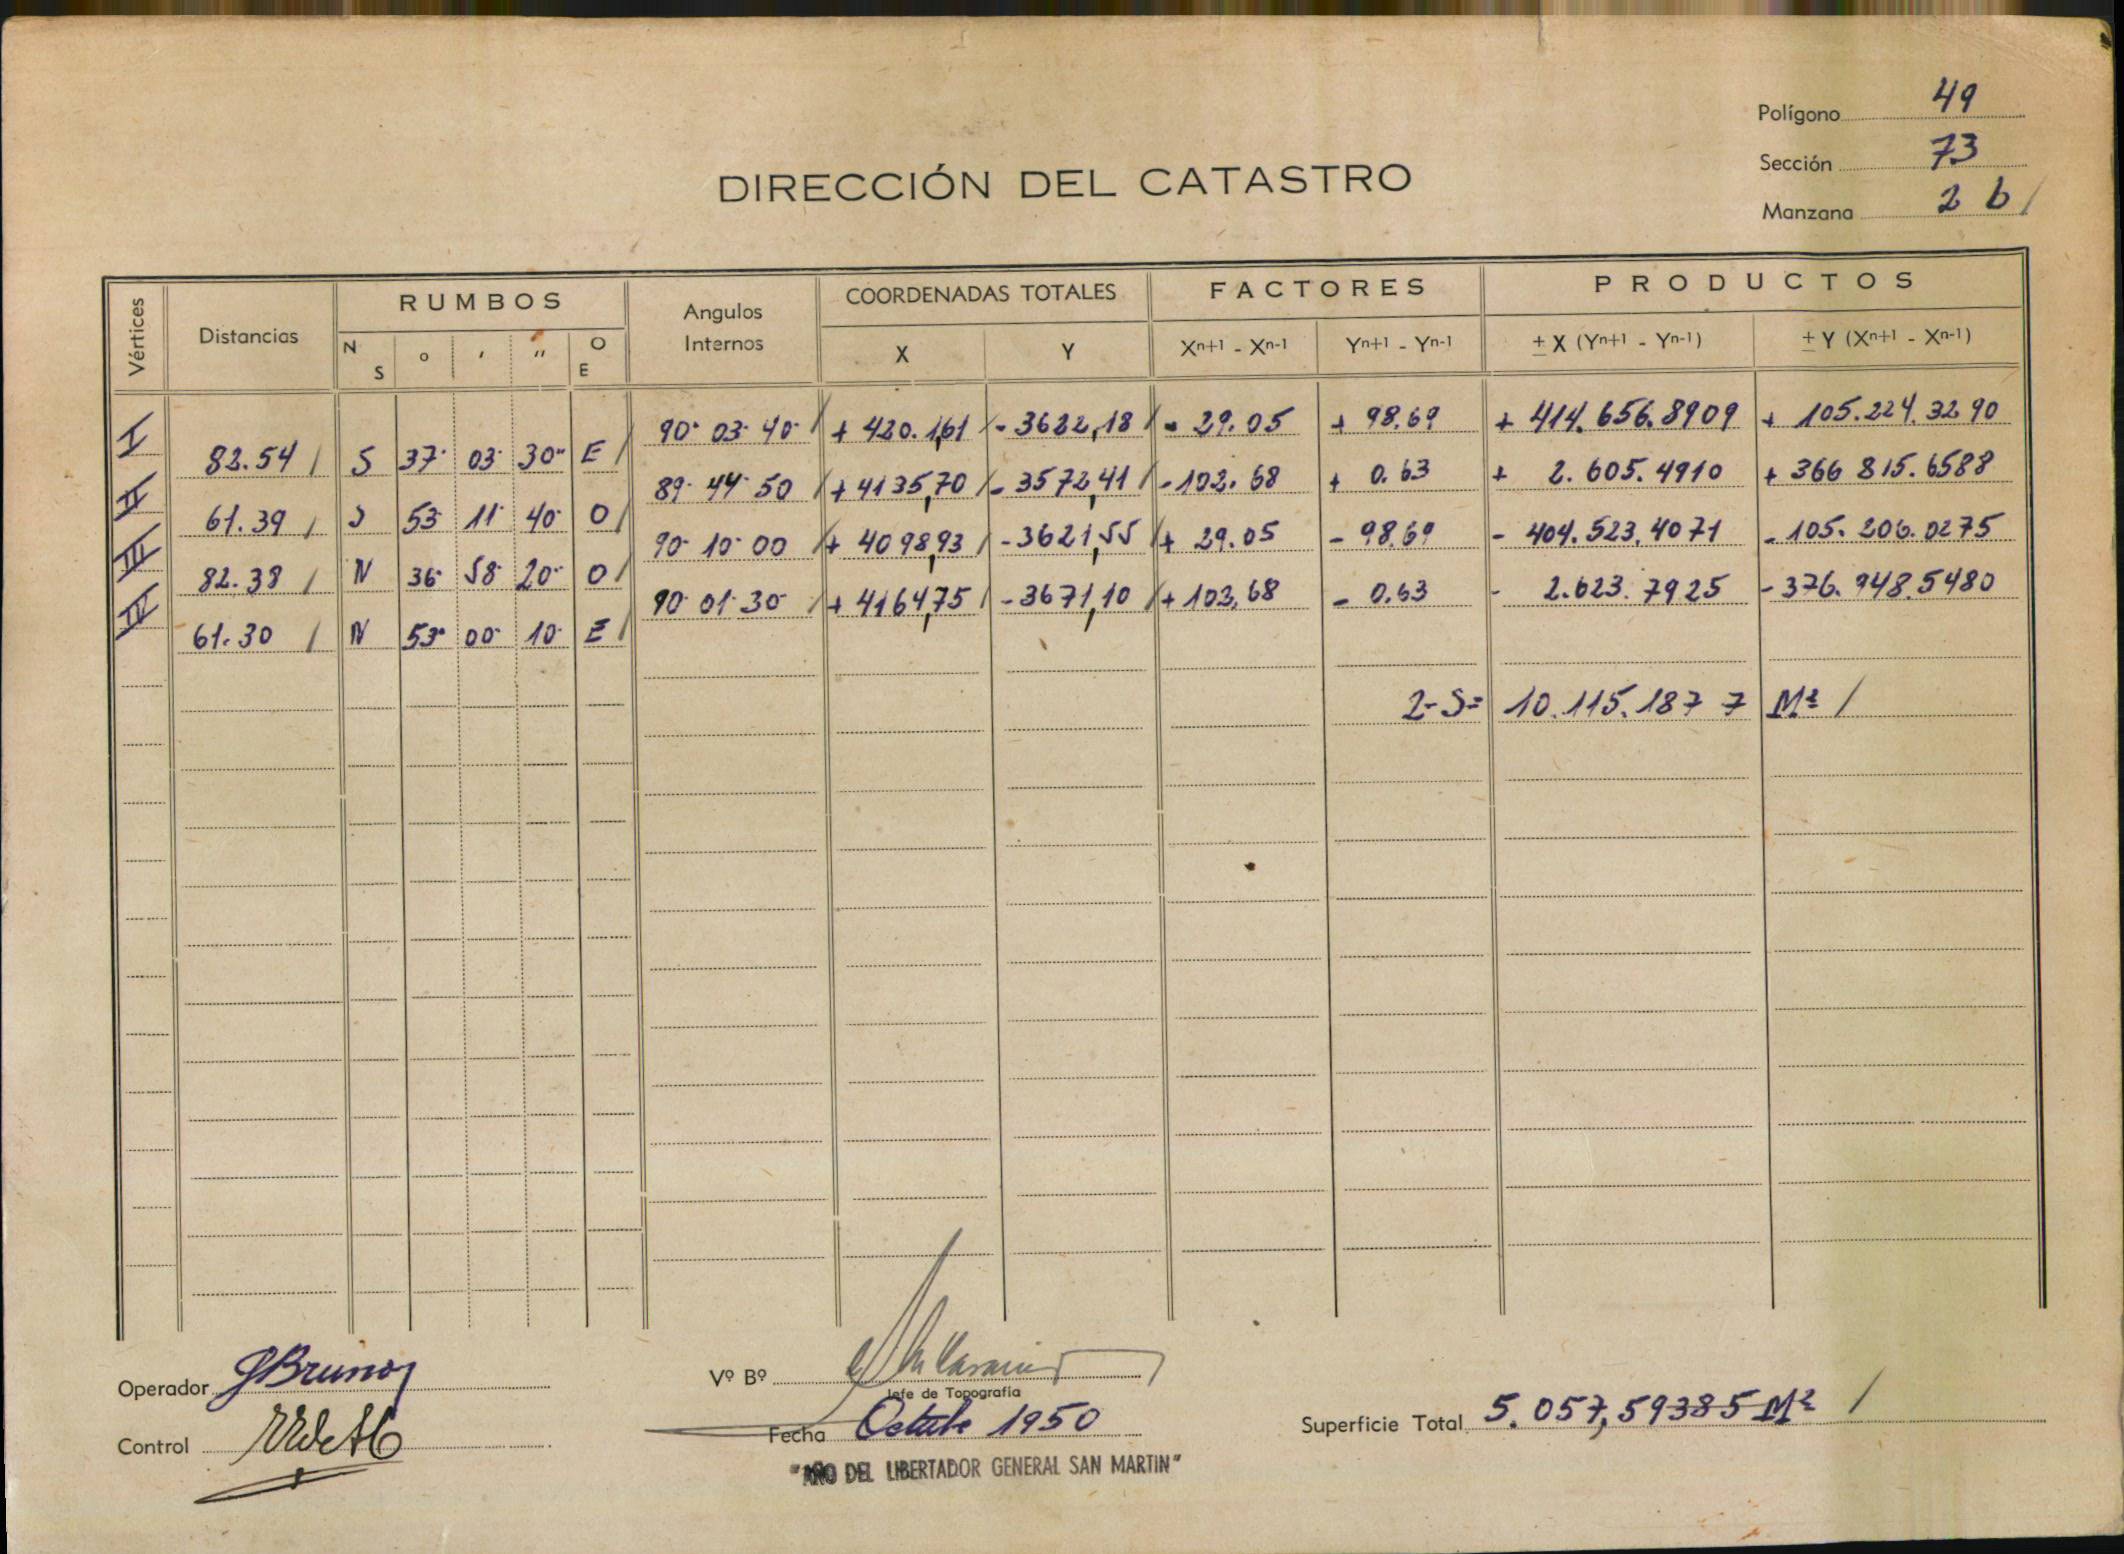 Polígono 49
Sección 73
Manzana 2 b /
DIRECCIÓN DEL CATASTRO
Vértices Distancias RUMBOS Angulos Internos COORDENADAS TOTALES FACTORES PRODUCTOS
N S o ' '' O E X Y Xn+1 - Xn-1 Yn+1 - Yn-1 ± X (Yn+1 - Yn-1) ± Y (Xn+1 - Xn-1)
I 90· 03· 40· / + 420.1,61 / - 3622,18 / - 29.05 + 98.69 + 414.656.8909 + 105.224.3290
82.54 / S 37· 03· 30" E /
II 89· 44· 50 / + 4135,70 / - 3572,41 / - 102.68 + 0.63 + 2.605.4910 + 366 815.6588
61.39 / S 53· 11· 40· O /
III 90· 10· 00 / + 4098,93 / - 3621,55 / + 29.05 - 98.69 - 404.523.4071 - 105.206.0275
82.38 / N 36· 58· 20· O /
IV 90· 01· 30· / + 4164,75 / - 3671,10 / + 103,68 - 0.63 - 2.623.7925 - 376.948.5480
61.30 / N 53· 00· 10· E /
2-S= 10.115.187 7 M² /
Operador GBruno
Vº Bº
Jefe de Topografía
Control
Fecha Octubre 1950
Superficie Total 5.057,59385 M² /
"AÑO DEL LIBERTADOR GENERAL SAN MARTIN"